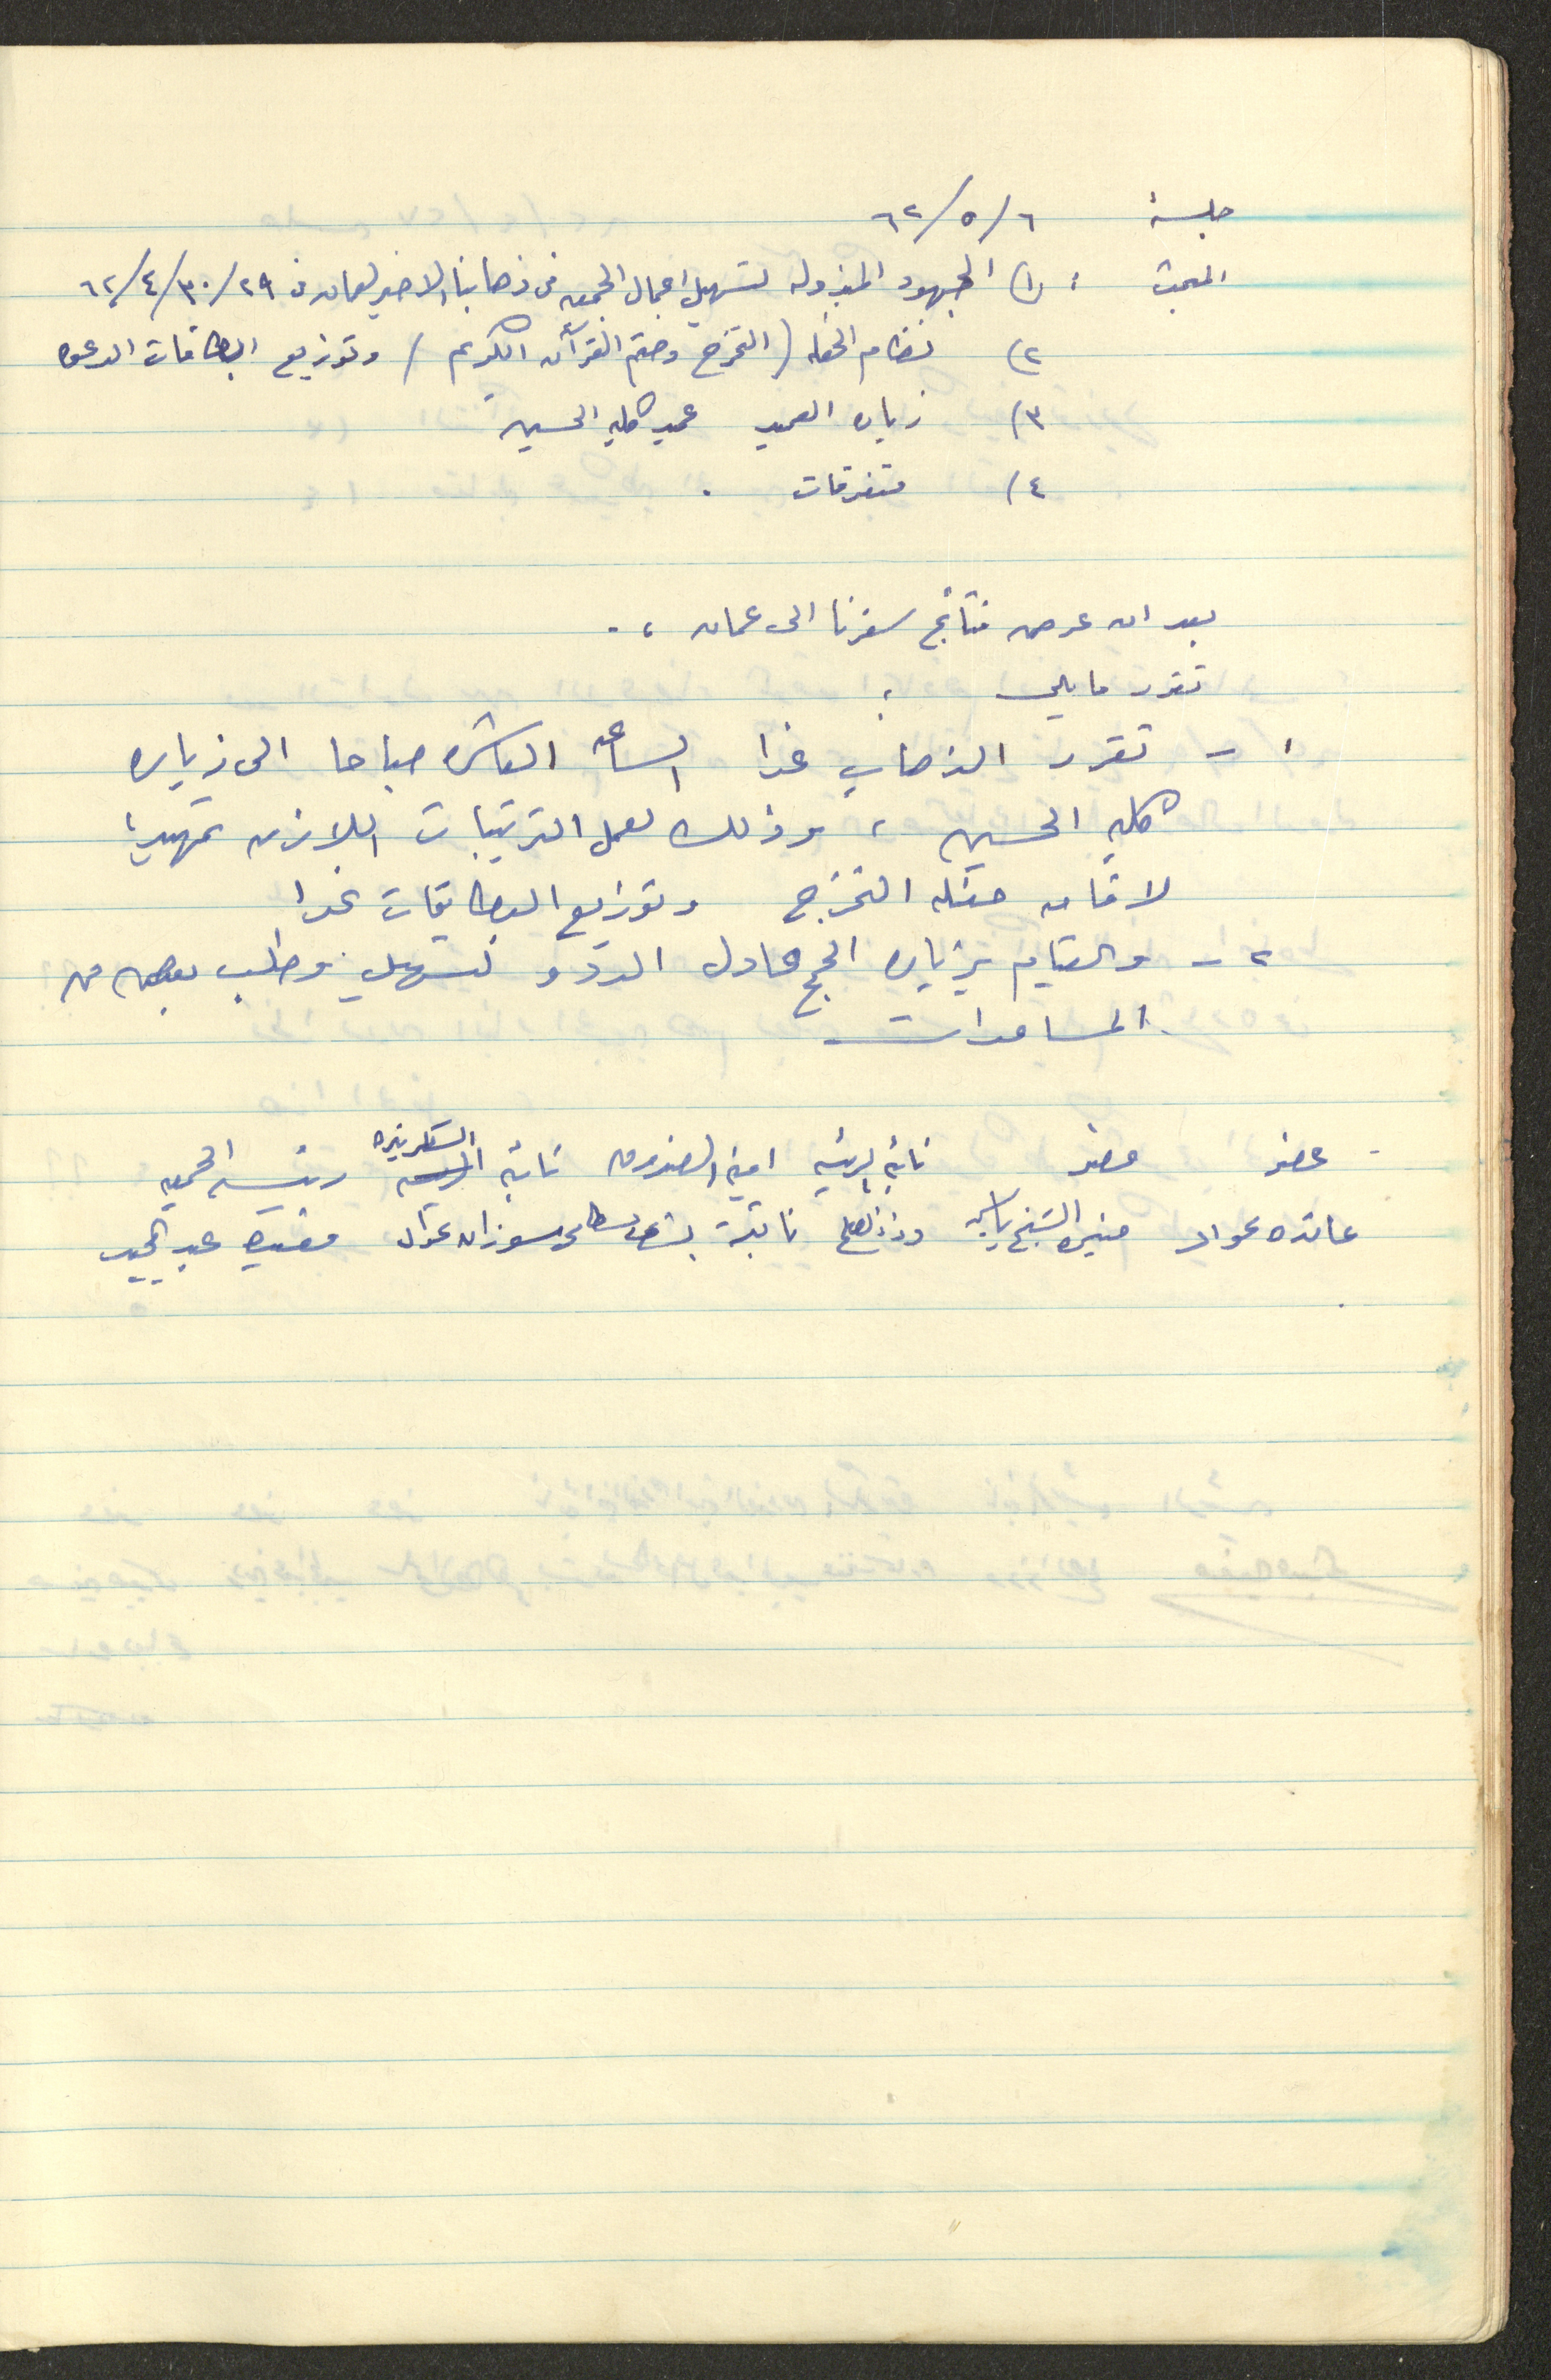 جلسة ٦/٥/٦٢
البحث : ١) الجهود المبذوله لتسهيل اعمال الجمعيه في ذهابنا الاخير لعمان في ٢٩/٣٠/٤/٦٢
٢) نظام الحفله (التخرج وختم القرآن الكريم) وتوزيع البطاقات الدعوه
٣) زياره العميد عميد كليه الحسين
٤) متفرقات .
بعد ان عرض نتائج سفرنا الى عمان ، .
تقرر ما يلي :
١ - تقرر الذهاب غدا الساعه العاشره صباحا الى زياره
كليه الحسين ، وذلك لعمل الترتيبات اللازمه تمهيدا
لاقامه حفله التخرج وتوزيع البطاقات غدا
٢ - والقيام بزياره الحج عادل الددو لتسهيل وطلب بعض من
المساعدات
عضو عضو نائبه الرئيسه امينه الصندوق نائبه السكرتيره رئيسه الجمعيه
عائده عواد منيره الشيخ ياسين نائبة سوزان عوال مفيده عبد المجيد